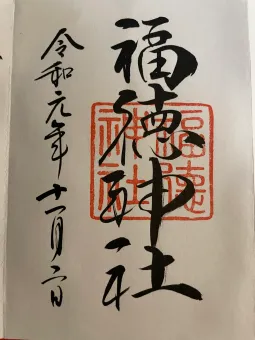 福徳神社
令和元年十一月二日
福德
神社